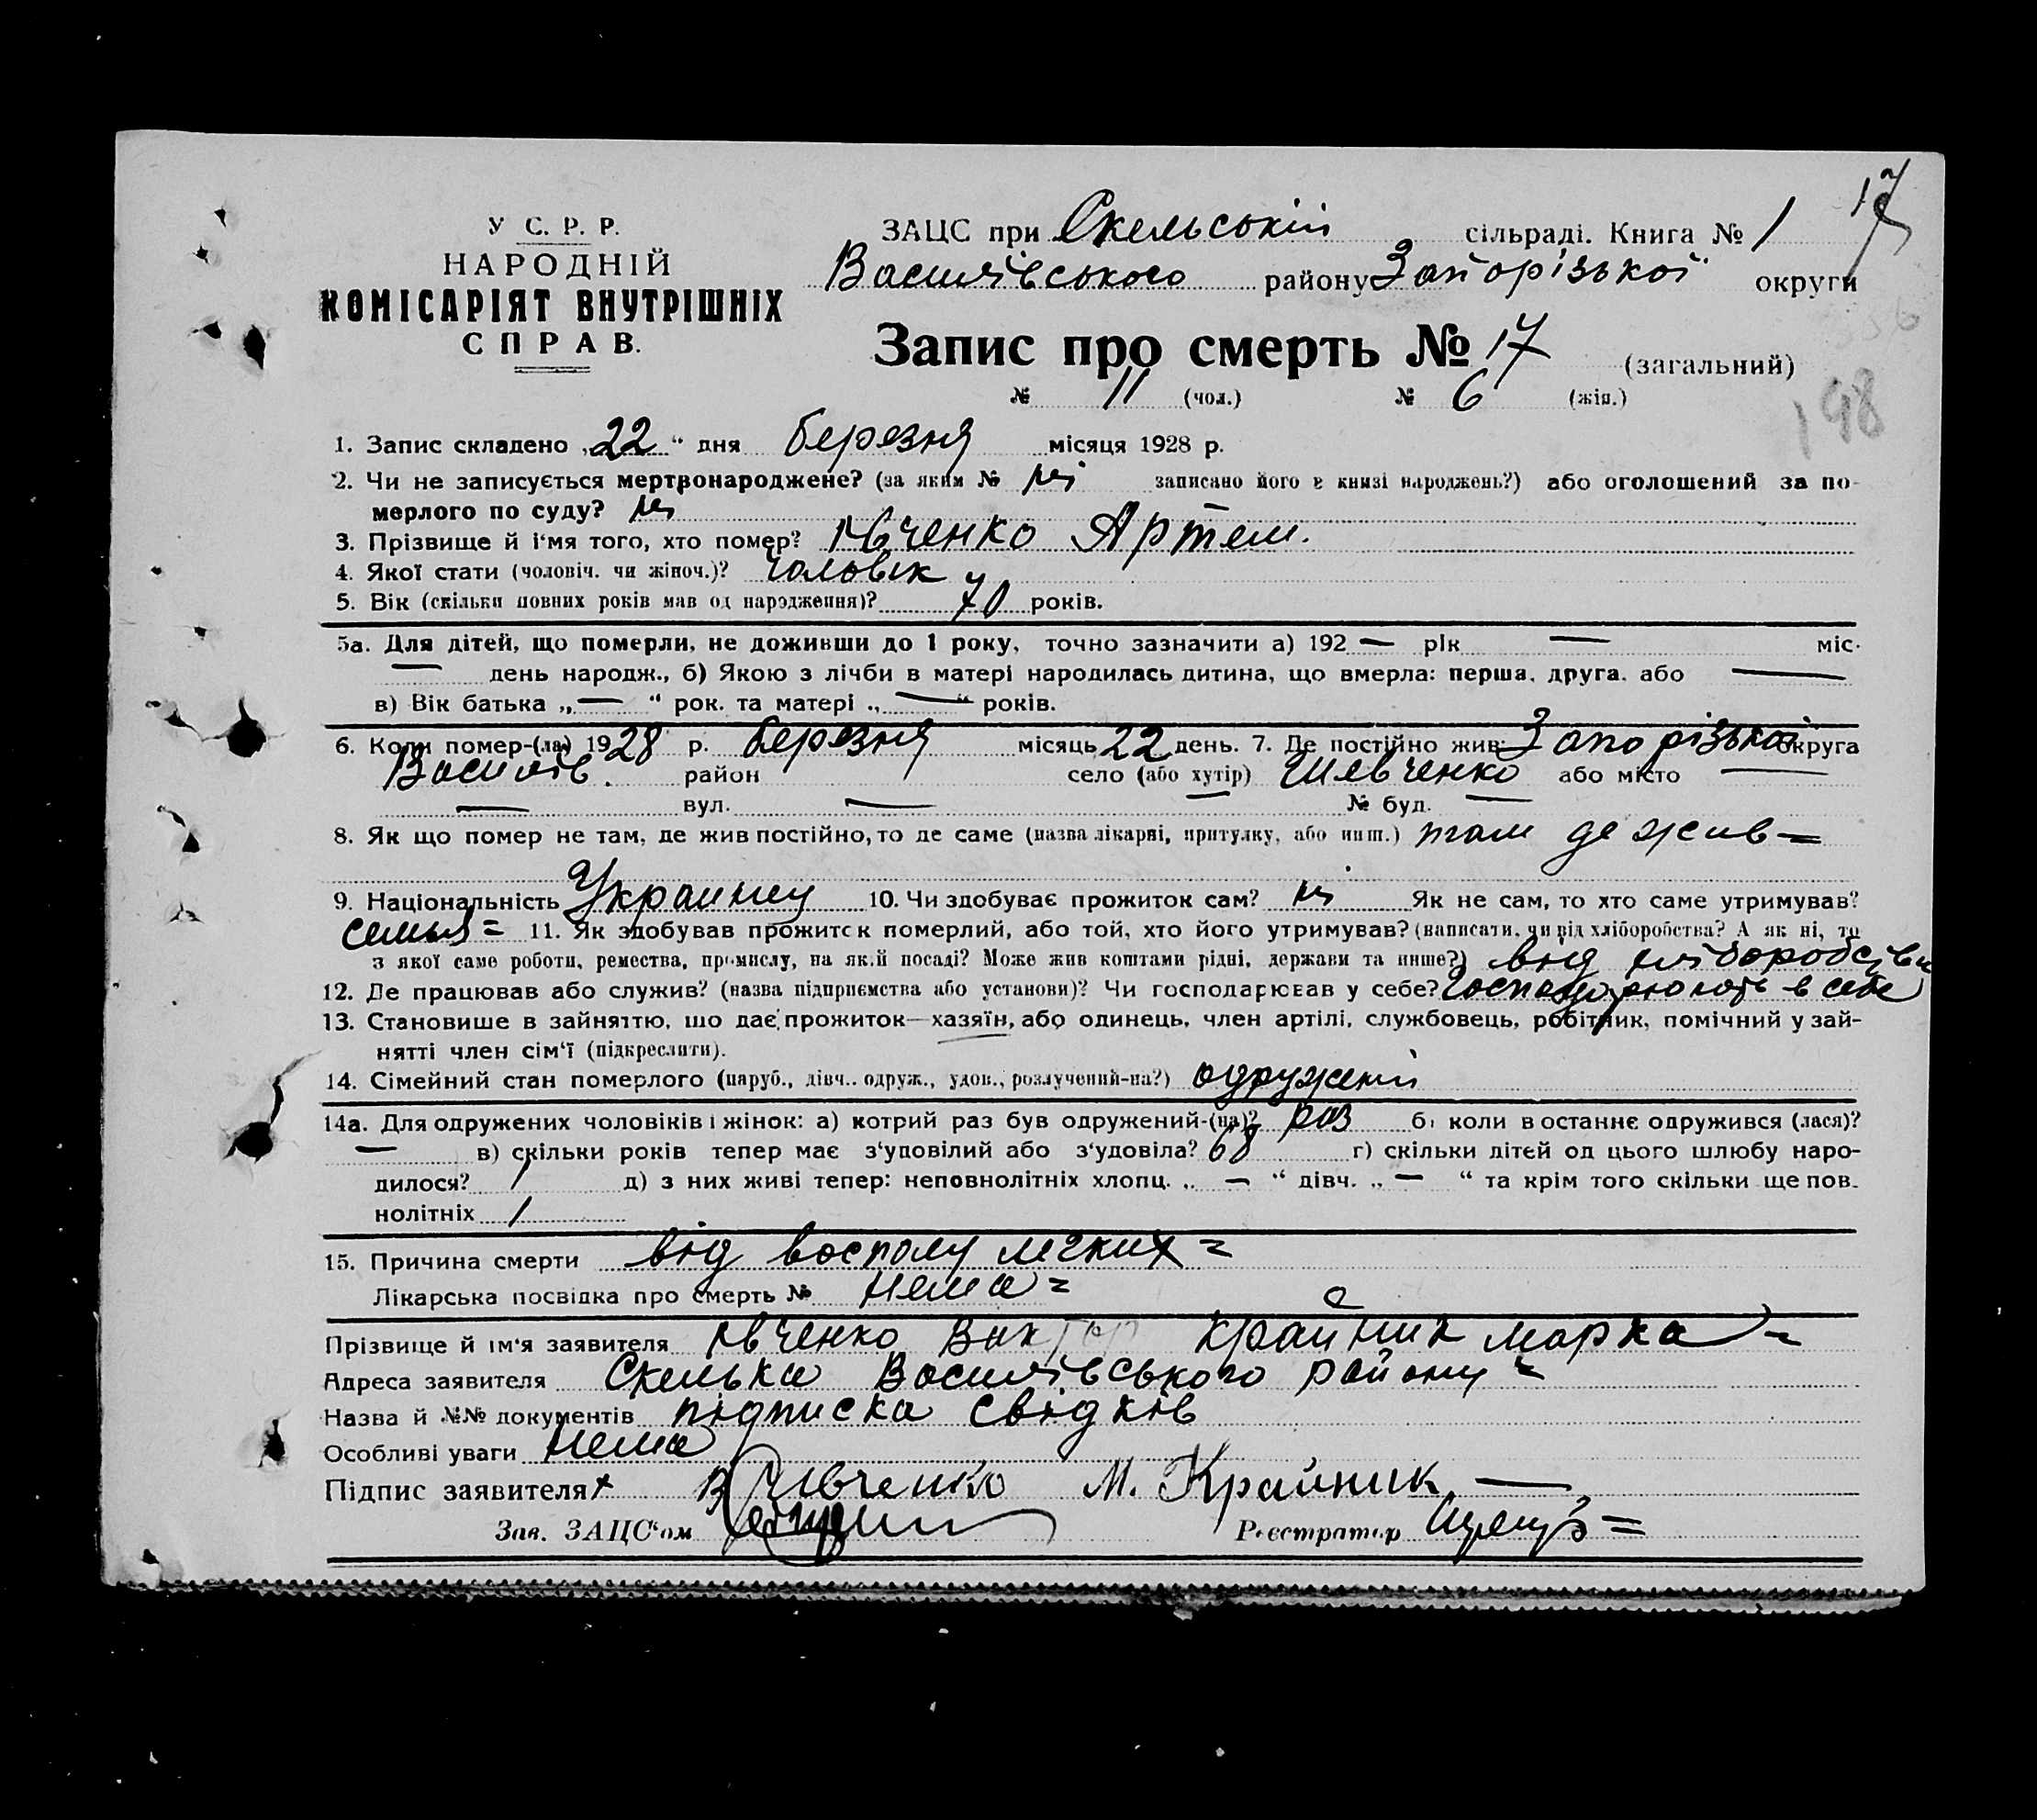 17
У С. Р. Р.
НАРОДНІЙ
КОМІСАРІЯТ ВНУТРІШНІХ
СПРАВ.
ЗАЦС при Скельській сільраді. Книга № 1
Василівського району Запорізької округи
Запис про смерть № 17 (загальний)
№ 11 (чол.) № 6 (жін.)
198
1. Запис складено „22“ дня березня місяця 1928 р.
2. Чи не записується мертвонароджене? (за яким № ні записано його в книзі народжень?) або оголошений за по-
мерлого по суду? ні
3. Прізвище й і‘мя того, хто помер? Івченко Артем.
4. Якої стати (чоловіч. чи жіноч.)? чоловік
5. Вік (скільки повних років мав од народження)? 70 років.
5а. Для дітей, що померли, не доживши до 1 року, точно зазначити а) 192 — рік — міс.
— день народж., б) Якою з лічби в матері народилась дитина, що вмерла: перша, друга, або —
в) Вік батька „—“ рок. та матері „—“ років.
6. Коли помер-(ла) 1928 р. березня місяць 22 день. 7. Де постійно жив: Запорізької округа
Василів. район село (або хутір) Шевченко або місто —
— вул. — № буд. —
8. Як що помер не там, де жив постійно, то де саме (назва лікарні, притулку, або инш.) там де жив =
9. Національність Украинец 10. Чи здобуває прожиток сам? ні Як не сам, то хто саме утримував?
семья = 11. Як здобував прожиток померлий, або той, хто його утримував? (написати, чи від хліборобства? А як ні, то
з якої саме роботи, ремества, промислу, на якій посаді? Може жив коштами рідні, держави та инше?) від хліборобства
12. Де працював або служив? (назва підприємства або установи)? Чи господарював у себе? Господорюють в себе
13. Становише в зайняттю, шо дає прожиток—хазяїн, або одинець, член артілі, службовець, робітник, помічний у зай-
нятті член сім‘ї (підкреслити).
14. Сімейний стан померлого (паруб., дівч.. одруж., удов., розлучений-на?) одружений
14а. Для одружених чоловіків і жінок: а) котрий раз був одружений-(на)? раз б) коли востаннє одружився (лася)?
— в) скільки років тепер має з‘удовілий або з‘удовіла? 68 г) скільки дітей од цього шлюбу наро-
дилося? 1 д) з них живі тепер: неповнолітніх хлопц. „—“ дівч. „—“ та крім того скільки ще пов-
нолітніх 1
15. Причина смерти від восполу легких =
Лікарська посвідка про смерть № нема =
Прізвище й ім‘я заявителя Івченко Виктор Крайник Марка =
Адреса заявителя Скелька Василівського району =
Назва й №№ документів підписка свідків
Особливі уваги нема
Підпис заявителя В Івченко М. Крайник —
Зав. ЗАЦС‘ом Реєстратор